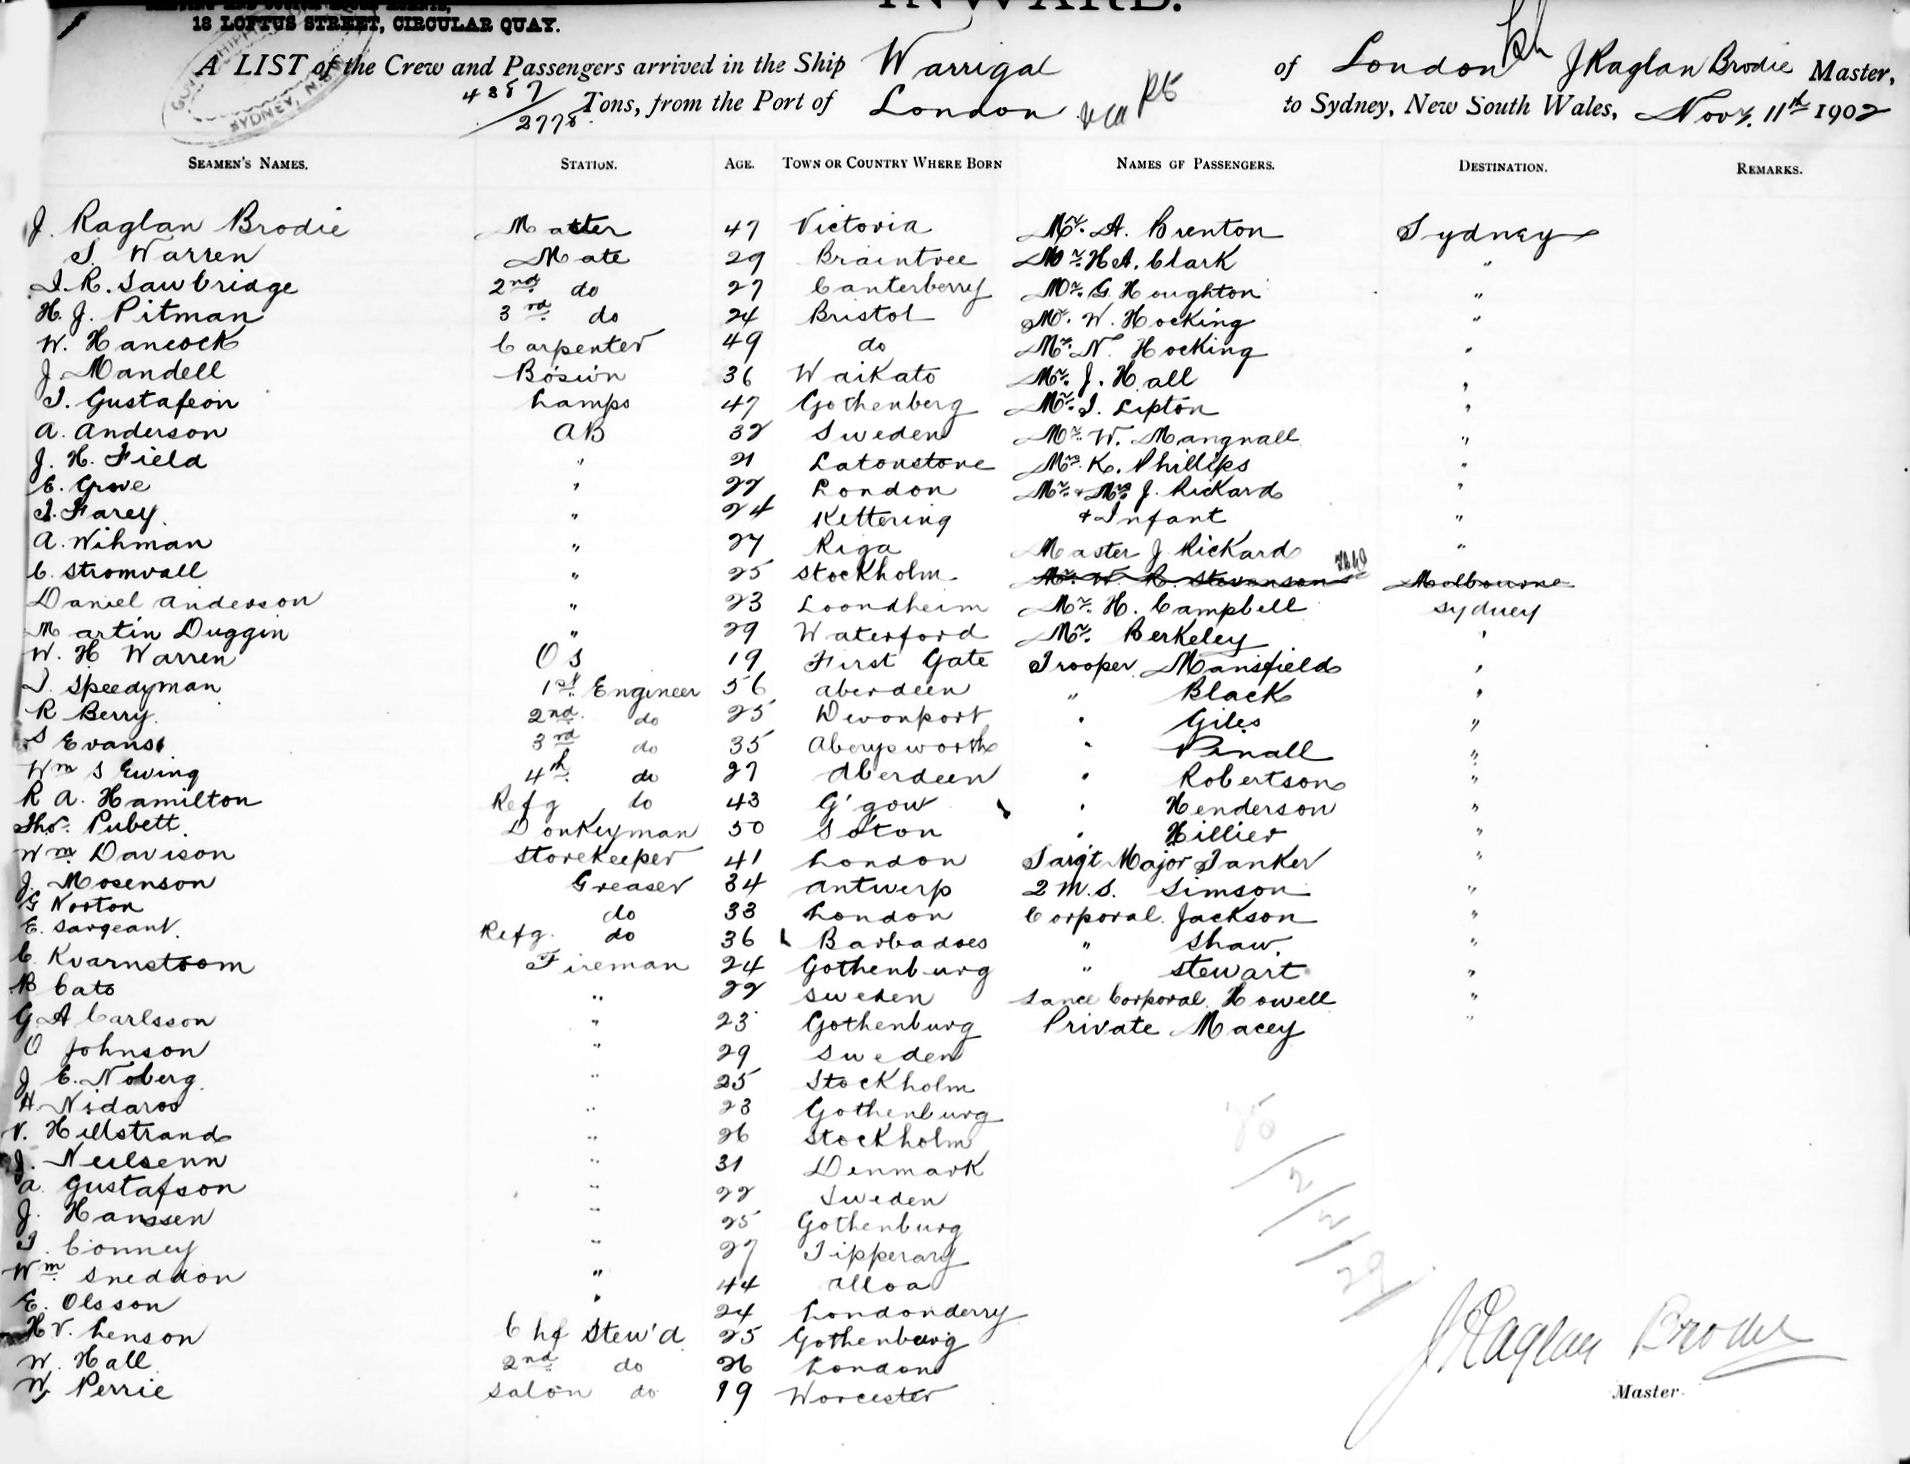 INWARD.
18 LOFTUS STREET, CIRCULAR QUAY.
A LIST of the Crew and Passengers arrived in the Ship Warrigal of London J Raglan Brodie Master,
4387/2778 Tons, from the Port of London to Sydney, New South Wales, Novr. 11th 1902
SEAMEN'S NAMES. STATION. AGE. TOWN OR COUNTRY WHERE BORN NAMES OF PASSENGERS. DESTINATION. REMARKS.
J. Raglan Brodie Master 47 Victoria Mr. A. Brenton Sydney
S. Warren Mate 29 Braintree Mr. H.A. Clark "
J.R. Sawbridge 2nd do 27 Canterberry Mr. G Houghton "
H. J. Pitman 3rd do 24 Bristol Mr. W. Hocking "
W. Hancock Carpenter 49 do Mr. N. Hocking "
J. Mandell Bosun 36 Waikato Mr. J. Hall "
T. Gustafson Lamps 47 Gothenberg Mr. T. Lipton "
A. Anderson AB 32 Sweden Mr. W. Mangnall "
J. H. Field " 21 Latonstone Mrs. K. Phillips "
E. Grove " 22 London Mr. & Mrs J. Rickard "
T. Farey. " 24 Kettering & Infant "
A. Wihman " 27 Riga Master J. Rickard "
C. Stromvall " 25 Stockholm Mr. W. R. Stevenson Melbourne
Daniel Anderson " 23 Loondheim Mr. H. Campbell Sydney
Martin Duggin " 29 Waterford Mr. Berkeley "
W. H Warren OS 19 First Gate Trooper Mansfield "
J. Speedyman 1st Engineer 56 Aberdeen " Black "
R Berry. 2nd do 25 Devonport " Giles "
S Evans 3rd do 35 Aberysworth " Pinall "
Wm S Ewing 4th do 27 Aberdeen " Robertson "
R A. Hamilton Refg do 43 G'gow " Henderson "
Thos. Pubett. Donkeyman 50 Soton " Hillier "
Wm Davison Storekeeper 41 London Sargt Major Tanker "
J. Mosenson Greaser 34 Antwerp 2 M.S. Simson "
G Norton do 33 London Corporal Jackson "
E. Sargeant. Refg. do 36 Barbadoes " Shaw. "
C. Kvarnstoom Fireman 24 Gothenburg " Stewart "
B Cato " 22 Sweden Lance Corporal Howell "
G A Carlsson " 23 Gothenburg Private Macey "
O Johnson " 29 Sweden
J E. Noberg. " 25 Stockholm
H. Nidaros " 23 Gothenburg
V. Hellstrand " 26 Stockholm
J. Neilsenn " 31 Denmark
A. Gustafson " 22 Sweden
J. Hanssen " 25 Gothenburg
T. Conney " 27 Tipperary
Wm Sneddon " 44 Alloa
E. Olsson " 24 Londonderry
H V. Lenson Chf Stew'd 25 Gothenburg
W. Hall 2nd do 26 London
W. Perrie Salon do 19 Worcester
J Raglan Brodie
Master.